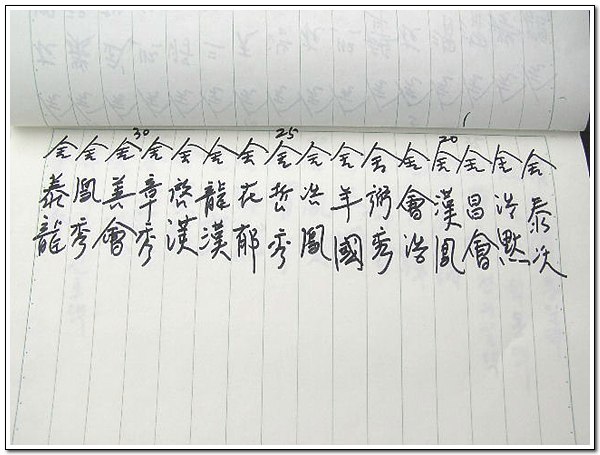 金泰次
金浩默
金昌會
20
金漢鳳
金會浩
金弼秀
金年國
金洪鳳
25
金哲秀
金在郁
金龍漢
金啓漢
金章秀
30
金善會
金鳳秀
金泰龍